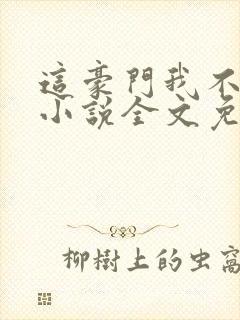 這豪門我不
小說全文免
柳樹上的虫窩